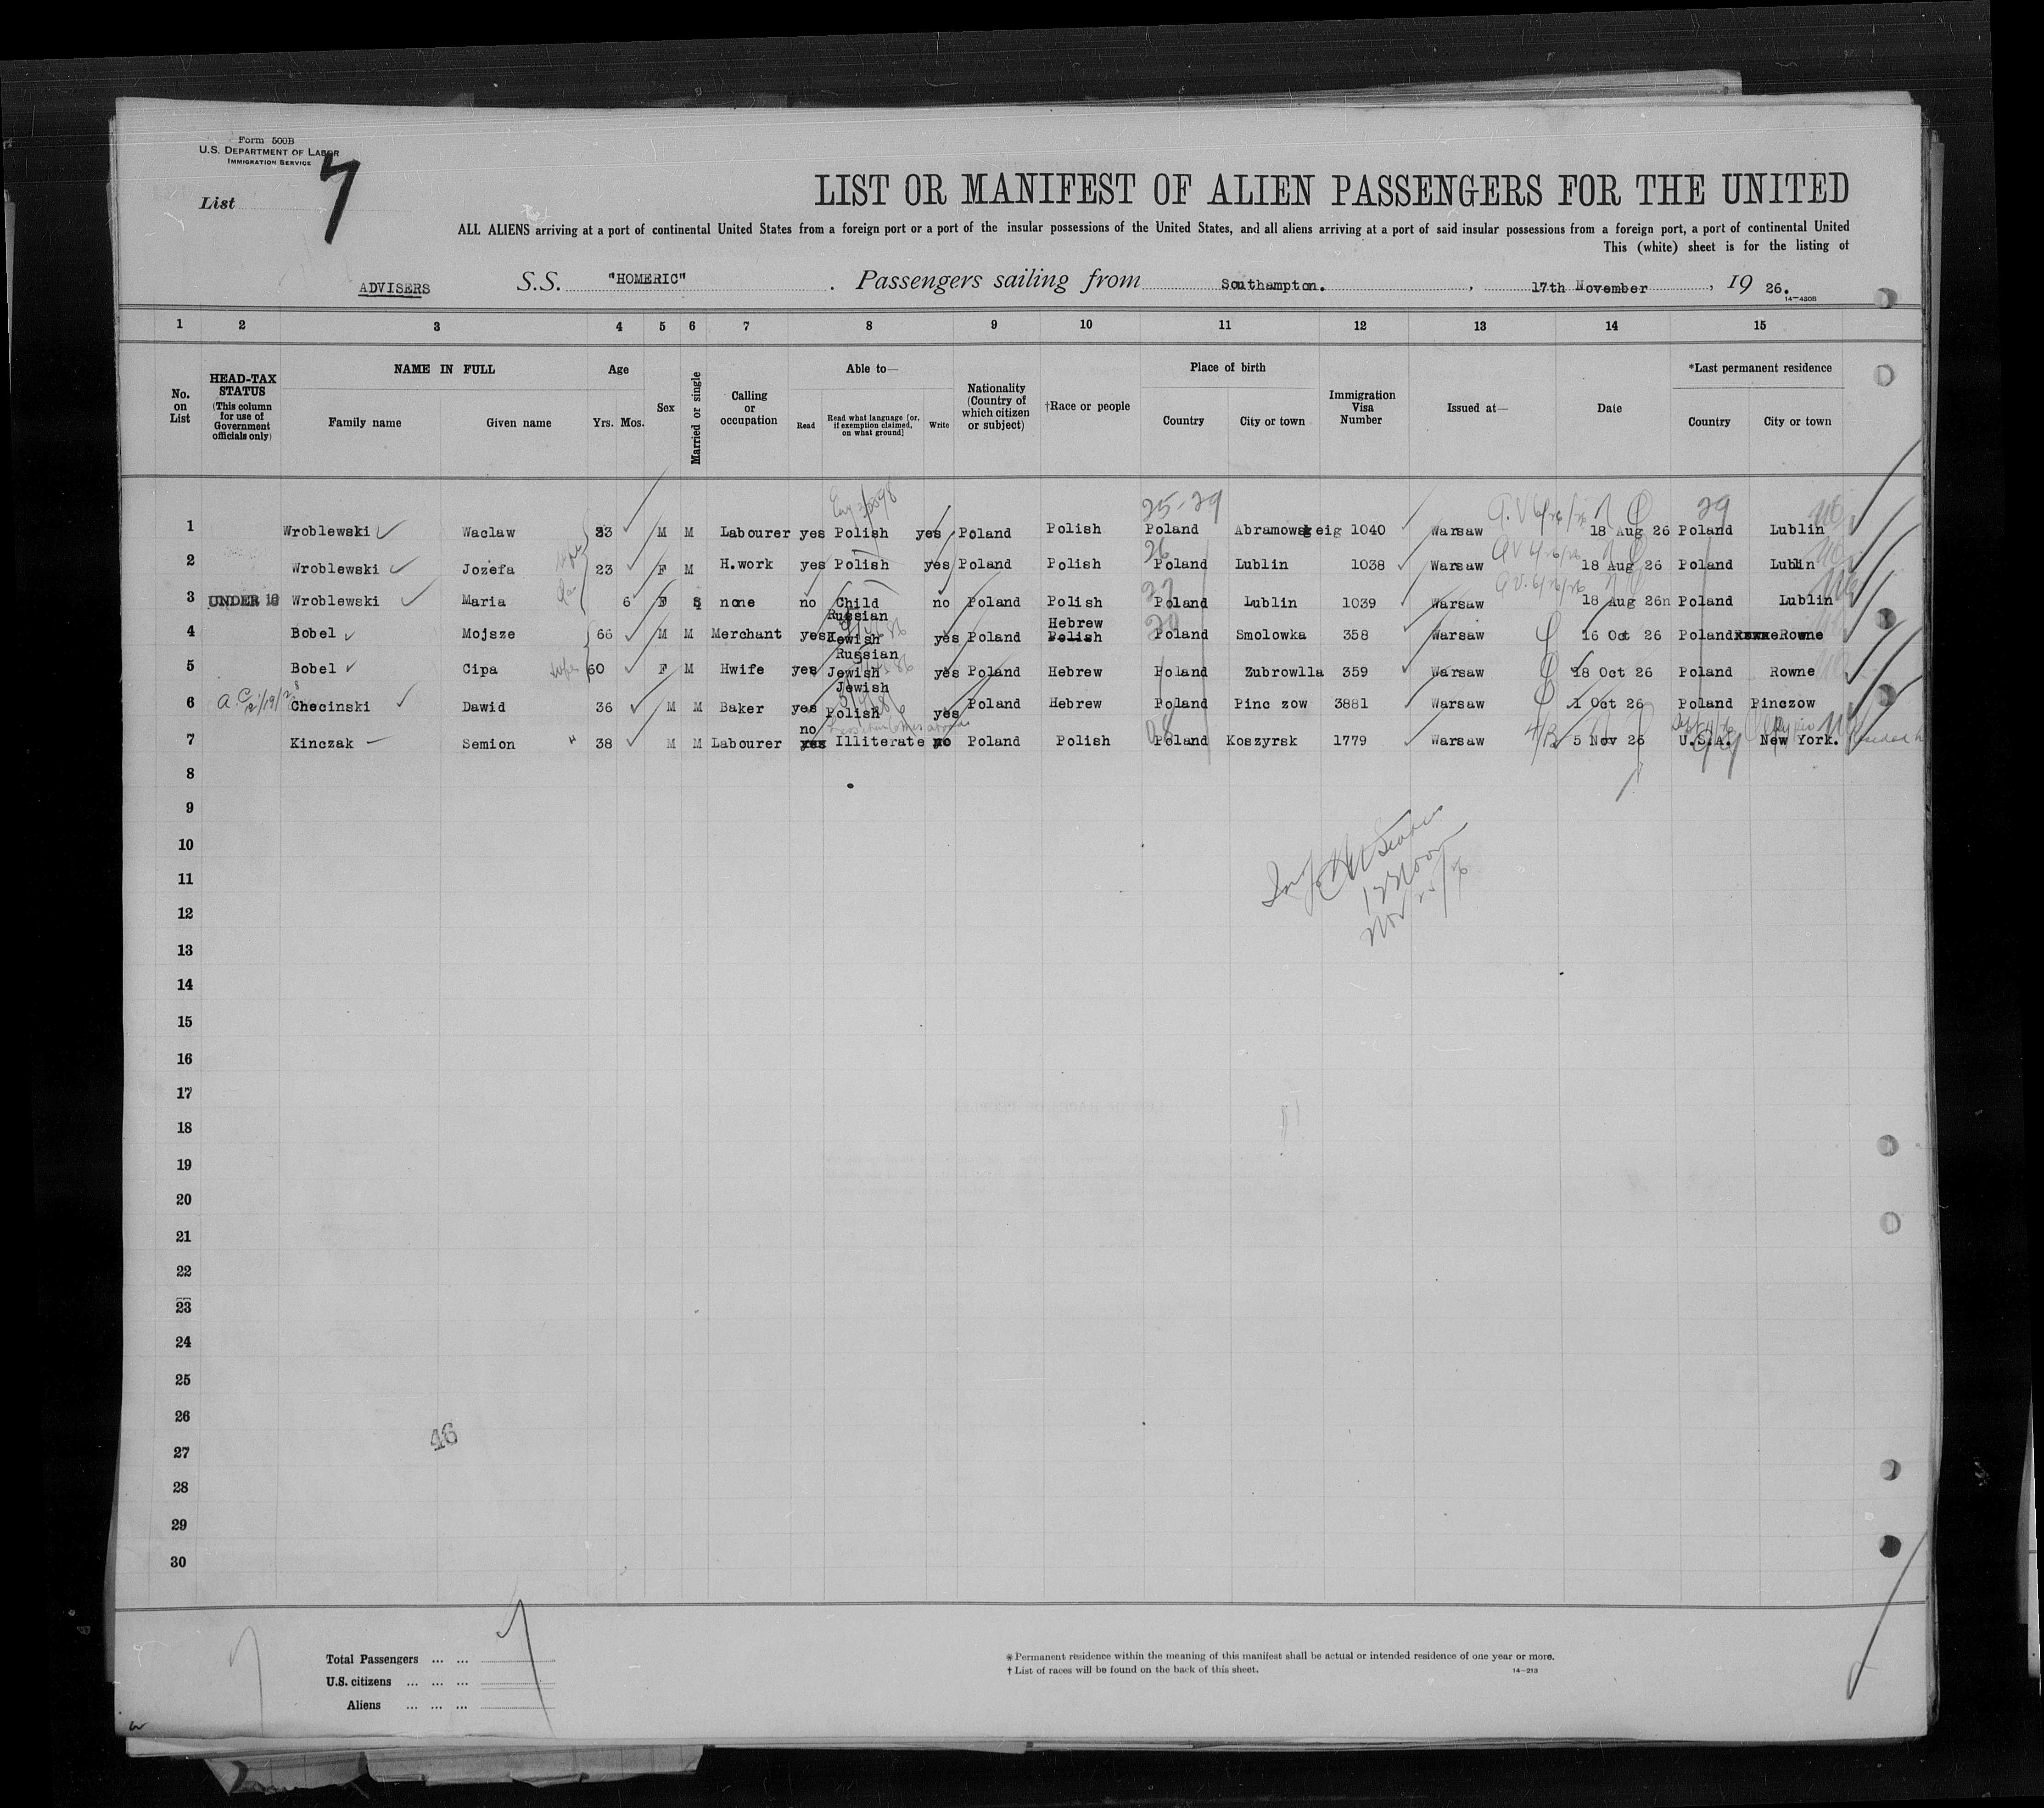 Form 500B
U.S. DEPARTMENT OF LABOR
IMMIGRATION SERVICE
List 7
LIST OR MANIFEST OF ALIEN PASSENGERS FOR THE UNITED
ALL ALIENS arriving at a port of continental United States from a foreign port or a port of the insular possessions of the United States, and all aliens arriving at a port of said insular possessions from a foreign port, a port of continental United
This (white) sheet is for the listing of
ADVISERS S.S. "HOMERIC" . Passengers sailing from Southampton. , 17th November , 19 26.
14-450B
1 2 3 4 5 6 7 8 9 10 11 12 13 14 15
No. on List
HEAD-TAX STATUS (This column for use of Government officials only)
NAME IN FULL
Family name Given name
Age
Yrs. Mos.
Sex
Married or single
Calling or occupation
Able to—
Read
Read what language [or, if exemption claimed, on what ground]
Write
Nationality (Country of which citizen or subject)
†Race or people
Place of birth
Country City or town
Immigration Visa Number
Issued at—
Date
*Last permanent residence
Country City or town
25-29 29
1 Wroblewski Waclaw 33 M M Labourer yes Polish yes Poland Polish Poland Abramowskeig 1040 Warsaw 18 Aug 26 Poland Lublin
26
2 Wroblewski Jozefa 23 F M H.work yes Polish yes Poland Polish Poland Lublin 1038 Warsaw 18 Aug 26 Poland Lublin
3 UNDER 16 Wroblewski Maria 6 F S none no Child no Poland Polish Poland Lublin 1039 Warsaw 18 Aug 26 Poland Lublin
Russian Hebrew
4 Bobel Mojsze 66 M M Merchant yes Jewish yes Poland Polish Poland Smolowka 358 Warsaw 16 Oct 26 Poland Rowne
Russian
5 Bobel Cipa wife 60 F M Hwife yes Jewish yes Poland Hebrew Poland Zubrowlla 359 Warsaw 18 Oct 26 Poland Rowne
Jewish
6 Checinski Dawid 36 M M Baker yes Polish yes Poland Hebrew Poland Pinc zow 3881 Warsaw 1 Oct 26 Poland Pinczow
no
7 Kinczak Semion 38 M M Labourer yes Illiterate no Poland Polish Poland Koszyrsk 1779 Warsaw 5 Nov 26 U.S.A. New York.
8
9
10
11
12
13
14
15
16
17
18
19
20
21
22
23
24
25
26
27
28
29
30
12 Noon
Nov 25/26
46
Total Passengers ... ... 7
U.S. citizens ... ... ...
Aliens ... ... ...
* Permanent residence within the meaning of this manifest shall be actual or intended residence of one year or more.
† List of races will be found on the back of this sheet. 14-213